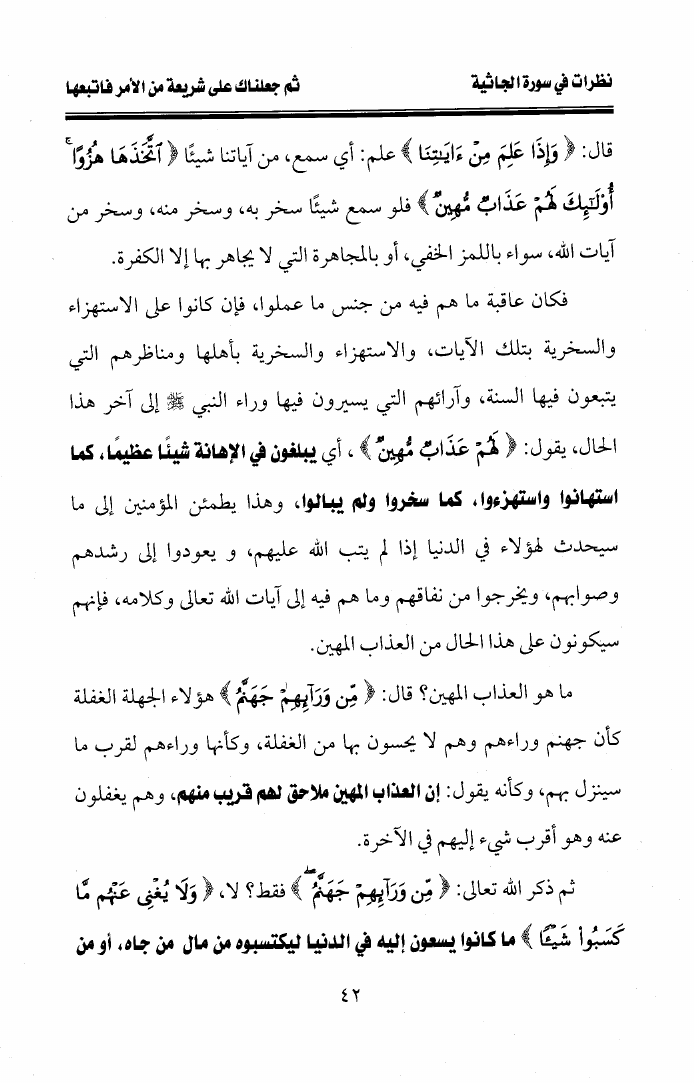 نظرات في سورة الجاثية
ثم جعلناك على شريعة من الأمر فاتبعها
قال: ﴿ وَإِذَا عَلِمَ مِنْ ءَايَـٰتِنَا ﴾ علم: أي سمع، من آياتنا شيئًا ﴿ ٱتَّخَذَهَا هُزُوًا ۚ
أُوْلَـٰٓئِكَ لَهُمْ عَذَابٌ مُّهِينٌ ﴾ فلو سمع شيئًا سخر به، وسخر منه، وسخر من
آيات الله، سواء باللمز الخفي، أو بالمجاهرة التي لا يجاهر بها إلا الكفرة.
فكان عاقبة ما هم فيه من جنس ما عملوا، فإن كانوا على الاستهزاء
والسخرية بتلك الآيات، والاستهزاء والسخرية بأهلها ومناظرهم التي
يتبعون فيها السنة، وآرائهم التي يسيرون فيها وراء النبي ﷺ إلى آخر هذا
الحال، يقول: ﴿ لَهُمْ عَذَابٌ مُّهِينٌ ﴾ ، أي يبلغون في الإهانة شيئًا عظيمًا، كما
استهانوا واستهزءوا، كما سخروا ولم يبالوا، وهذا يطمئن المؤمنين إلى ما
سيحدث لهؤلاء في الدنيا إذا لم يتب الله عليهم، و يعودوا إلى رشدهم
وصوابهم، ويخرجوا من نفاقهم وما هم فيه إلى آيات الله تعالى وكلامه، فإنهم
سيكونون على هذا الحال من العذاب المهين.
ما هو العذاب المهين؟ قال: ﴿ مِّن وَرَآئِهِمْ جَهَنَّمُ ﴾ هؤلاء الجهلة الغفلة
كأن جهنم وراءهم وهم لا يحسون بها من الغفلة، وكأنها وراءهم لقرب ما
سينزل بهم، وكأنه يقول: إن العذاب المهين ملاحق لهم قريب منهم، وهم يغفلون
عنه وهو أقرب شيء إليهم في الآخرة.
ثم ذكر الله تعالى: ﴿ مِّن وَرَآئِهِمْ جَهَنَّمُ ۖ ﴾ فقط؟ لا، ﴿ وَلَا يُغْنِى عَنْهُم مَّا
كَسَبُواْ شَيْـًٔا ﴾ ما كانوا يسعون إليه في الدنيا ليكتسبوه من مال من جاه، أو من
٤٢